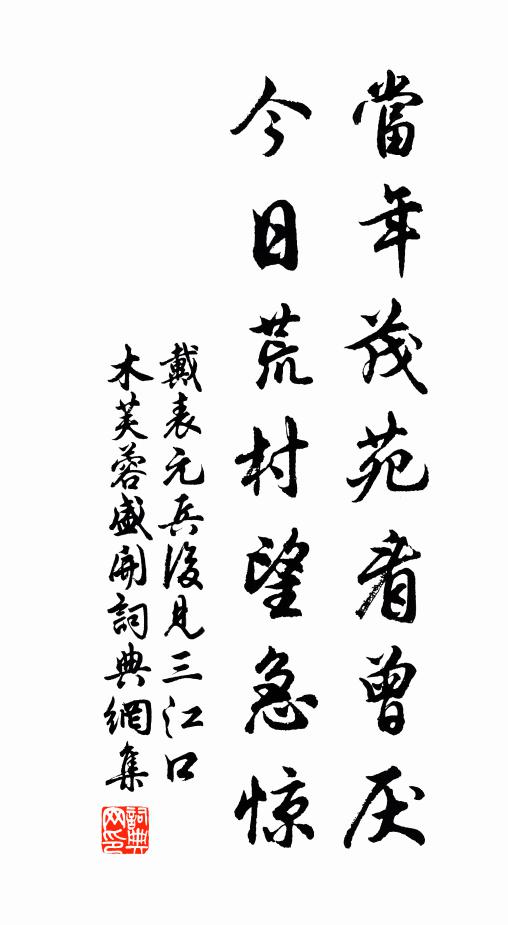 當年茂苑看曾厌
今日荒村望急惊
戴表元兵後見三江口
木芙蓉盛開詞典網集
詞典网印